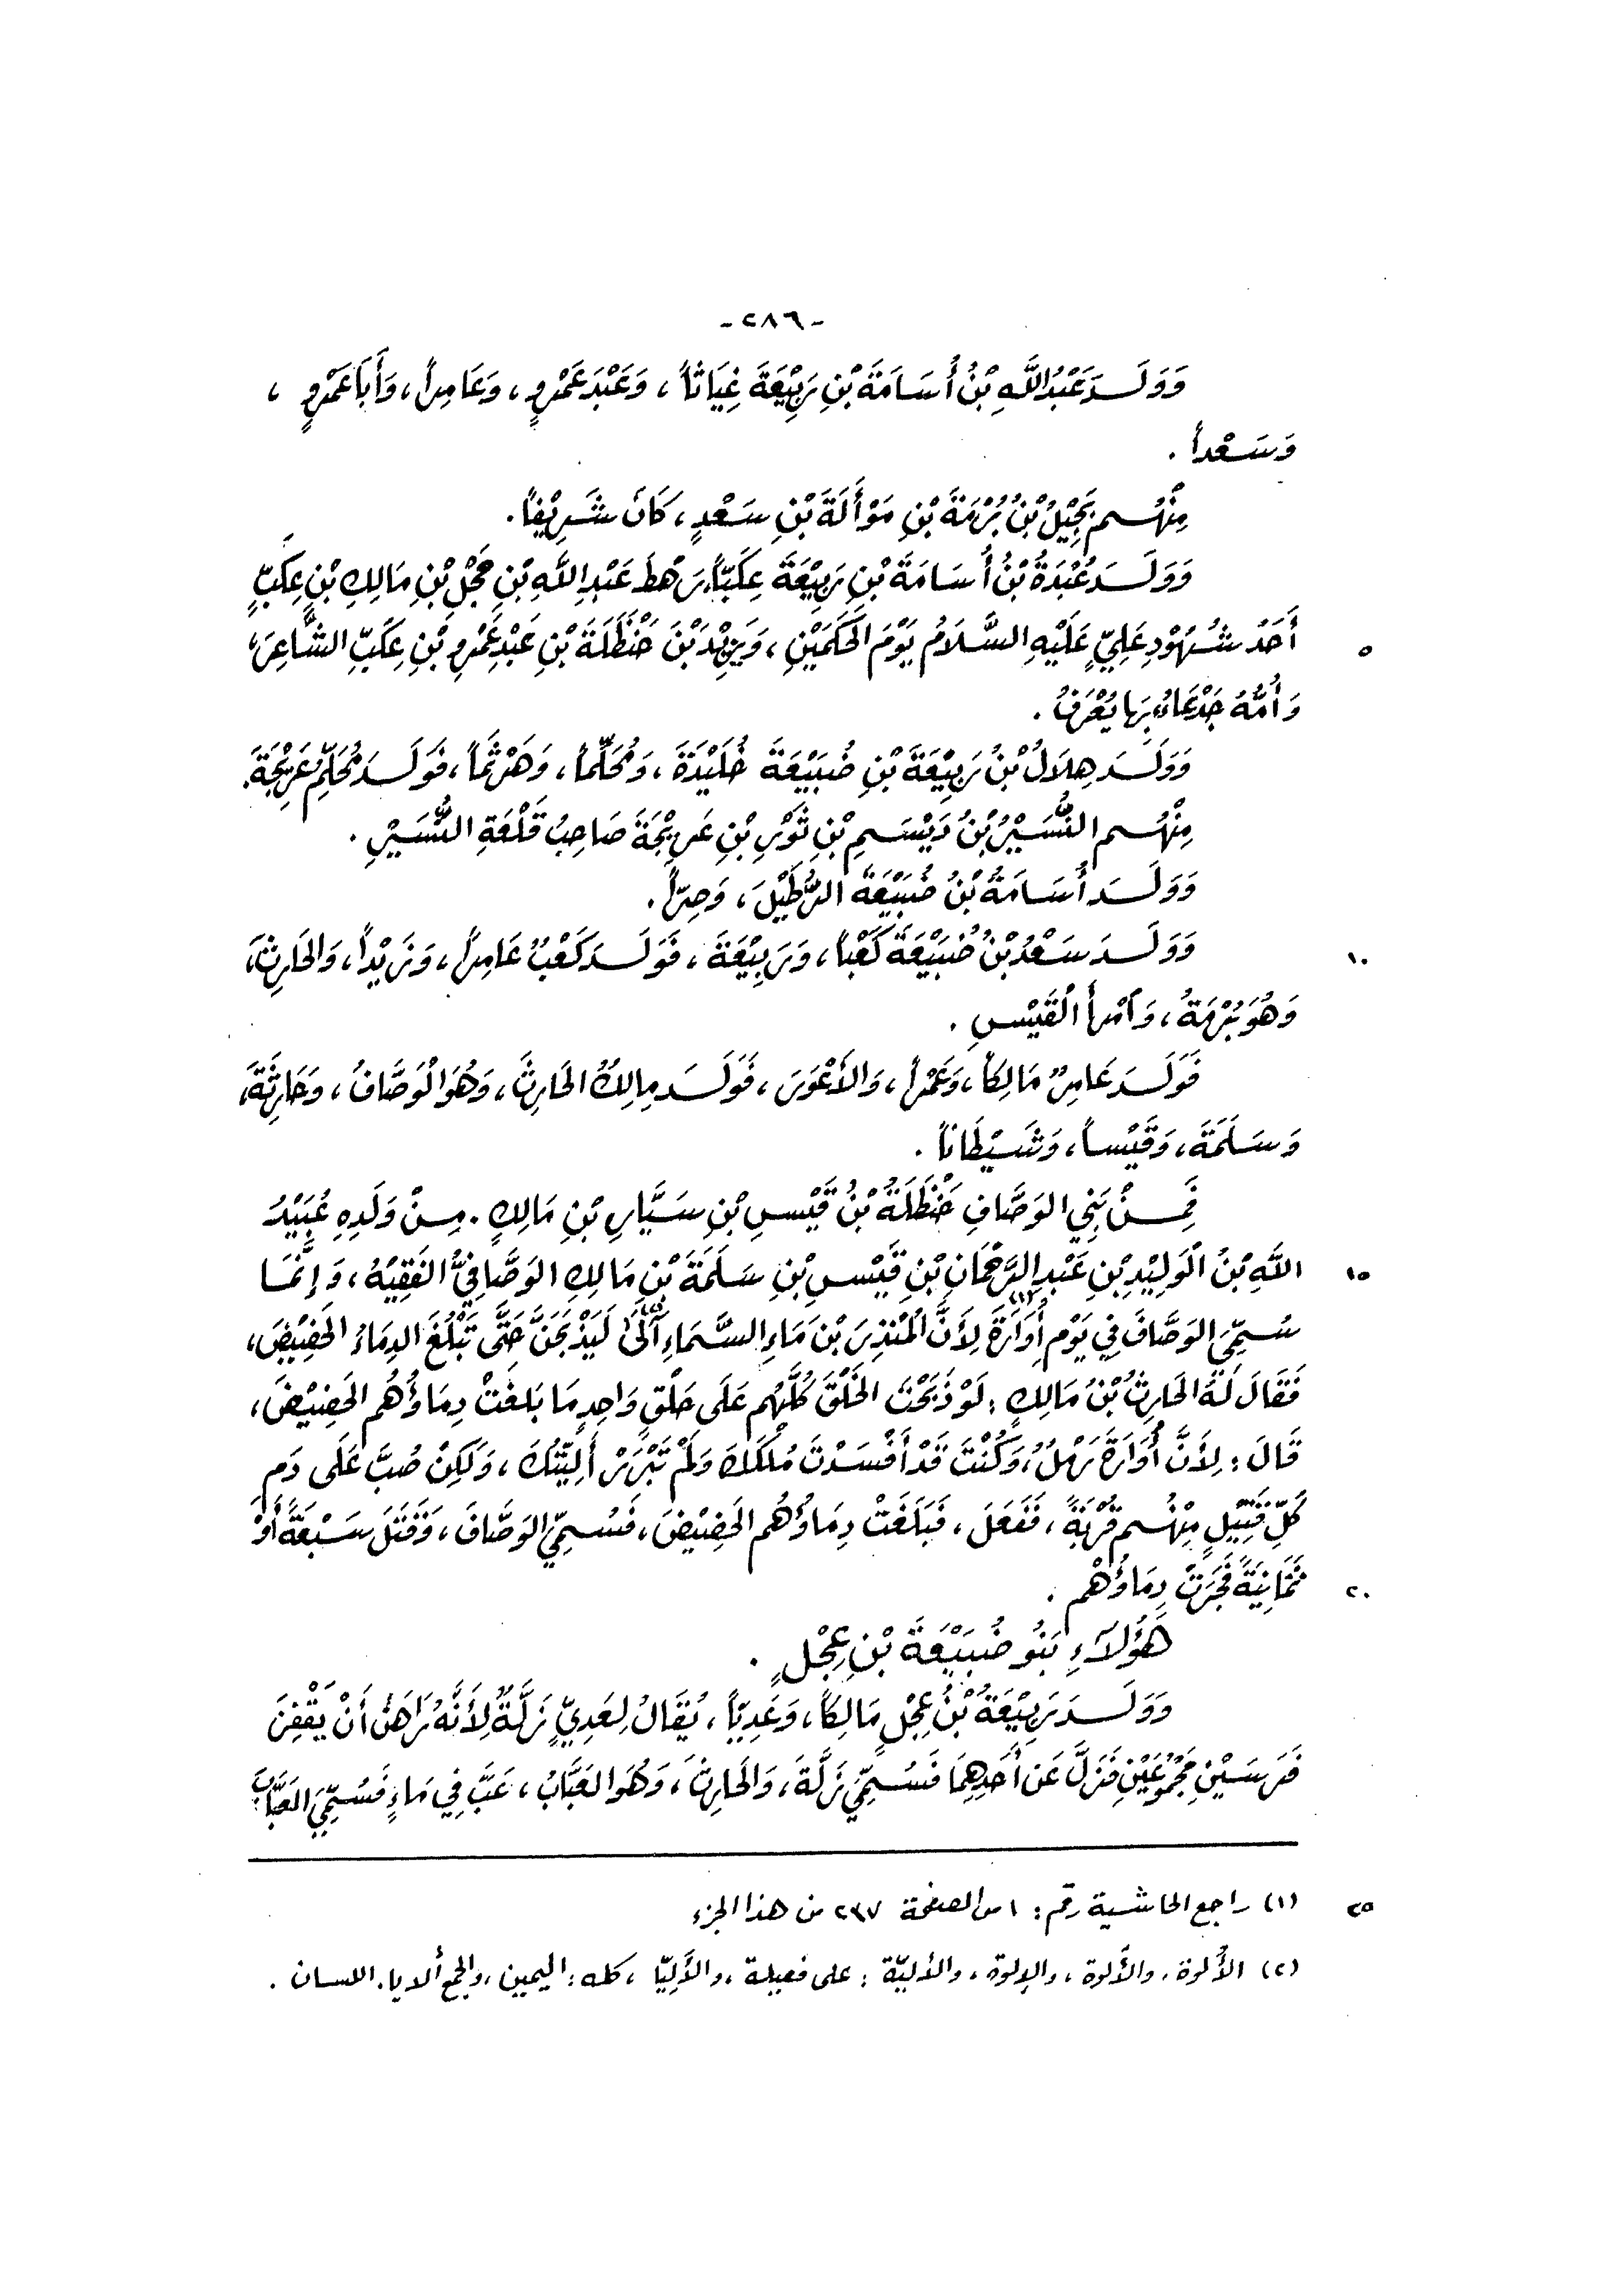 -٢٨٦-
وَوَلَدَ عَبْدُ اللَّهِ بْنُ أُسَامَةَ بْنِ رَبِيْعَةَ غِيَاثاً، وَعَبْدَ عَمْرٍو، وَعَامِراً، وَأَبَا عَمْرٍو،
وَسَعْداً.
مِنْهُم بَجِيْلُ بْنُ بُرْمَةَ بْنِ مَوْأَلَةَ بْنِ سَعْدٍ، كَانَ شَرِيْفاً.
وَوَلَدَ عُبْدَةُ بْنُ أُسَامَةَ بْنِ رَبِيْعَةَ عِكَبّاً، رَهْطَ عَبْدِ اللَّهِ بْنِ حَجْلِ بْنِ مَالِكِ بْنِ عِكَبٍّ
٥ أَحَدُ شُهُوْدِ عَلِيٍّ عَلَيْهِ السَّلَامُ يَوْمَ الحَكَمَيْنِ، وَيَزِيْدَ بْنَ حَنْظَلَةَ بْنِ عَبْدِ عَمْرِو بْنِ عِكَبِّ الشَّاعِرَ،
وَأُمُّهُ جَدْعَاءُ بِهَا يُعْرَفُ.
وَوَلَدَ هِلَالُ بْنُ رَبِيْعَةَ بْنِ ضُبَيْعَةَ خُلَيْدَةَ، وَمُحَلِّماً، وَهَرْثَماً، فَوَلَدَ مُحَلِّمٌ عَرِيْجَةَ.
مِنْهُم النُّسَيْرُ بْنُ دَيْسَمِ بْنِ ثَوْرِ بْنِ عَرِيْجَةَ صَاحِبُ قَلْعَةِ النُّسَيْرِ.
وَوَلَدَ أُسَامَةُ بْنُ ضُبَيْعَةَ الرُّطَيْلَ، وَصِرّاً.
١٠ وَوَلَدَ سَعْدُ بْنُ ضُبَيْعَةَ كَعْباً، وَرَبِيْعَةَ، فَوَلَدَ كَعْبٌ عَامِراً، وَزَيْداً، وَالحَارِثَ،
وَهُوَ بُرْمَةُ، وَآمْرأَ القَيْسِ.
فَوَلَدَ عَامِرٌ مَالِكاً، وَعَمْراً، وَالأَعْوَرَ، فَوَلَدَ مَالِكٌ الحَارِثَ، وَهُوَ الْوَصَّافُ، وَحَارِثَةَ،
وَسَلَمَةَ، وَقَيْساً، وَشَيْطَاناً.
فَمِنْ بَنِي الوَصَّافِ حَنْظَلَةُ بْنُ قَيْسِ بْنِ سَيَّارِ بْنِ مَالِكٍ. مِنْ وَلَدِهِ عُبَيْدُ
١٥ اللَّهِ بْنُ الْوَلِيْدِ بْنِ عَبْدِ الرَّحْمَانِ بْنِ قَيْسِ بْنِ سَلَمَةَ بْنِ مَالِكِ الوَصَّافِيُّ الفَقِيْهُ، وَإِنَّمَا
سُمِّيَ الوَصَّافَ فِي يَوْمِ أُوَارَةَ(١) لِأَنَّ الْمُنْذِرَ بْنَ مَاءِ السَّمَاءِ آلَىٰ(٢) لَيَذْبَحَنَّ حَتَّى تَبْلُغَ الدِمَاءُ الحَضِيْضَ،
فَقَالَ لَهُ الحَارِثُ بْنُ مَالِكٍ: لَوْ ذَبَحْتَ الخَلْقَ كُلَّهُم عَلَى حَلْقٍ وَاحِدٍ مَا بَلَغَتْ دِمَاؤُهُم الحَضِيْضَ،
قَالَ: لِأَنَّ أُوَارَةَ رَمْلٌ، وَكُنْتَ قَدْ أَفْسَدْتَ مُلْكَكَ وَلَمْ تَبْرَرْ أَلِيَّتُكَ، وَلَكِنْ صُبَّ عَلَى دَمِ
كُلِّ قَتِيْلٍ مِنْهُم قُرْبَةً، فَفَعَلَ، فَبَلَغَتْ دِمَاؤُهُم الحَضِيْضَ، فَسُمِّيَ الوَصَّافَ، وَقَتَلَ سَبْعَةً أَوْ
٢٠ ثَمَانِيَةً فَجَرَتْ دِمَاؤُهُم.
هَؤُلَاءِ بَنُو ضُبَيْعَةَ بْنِ عِجْلٍ.
وَوَلَدَ رَبِيْعَةُ بْنُ عِجْلٍ مَالِكاً، وَعَدِيّاً، يُقَالُ لِعَدِيٍّ زَلَّةُ لِأَنَّهُ رَاهَنَ أَنْ يَقْفِزَ
فَرَسَيْنِ مَجْمُوْعَيْنِ فَزَلَّ عَن أَحَدِهِمَا فَسُمِّيَ زَلَّةَ، وَالحَارِثَ، وَهُوَ العَبَّابُ، عَبَّ فِي مَاءٍ فَسُمِّيَ العَبَّابَ
٢٥ (١) راجع الحاشية رقم: ١ من الصفحة ٢٣٧ من هذا الجزء
(٢) الأُلوة، والأَلوة، والإلوة، والأليّة: على فعيلة، والأَلِيّا، كله: اليمين، والجمع ألايا. اللسان.